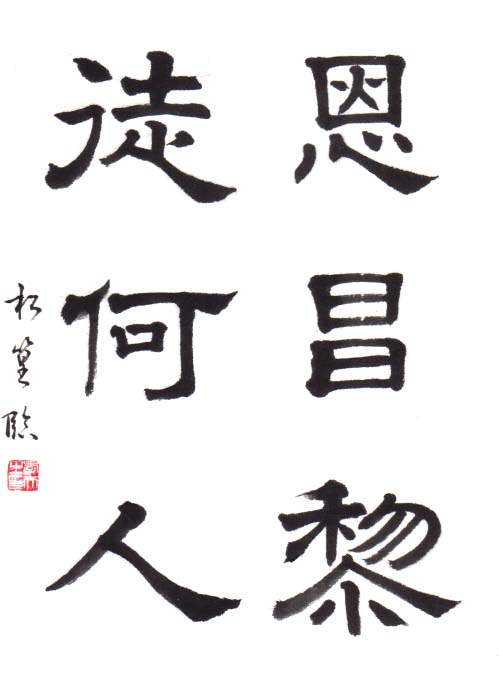 恩昌黎
徒何人
松篁臨